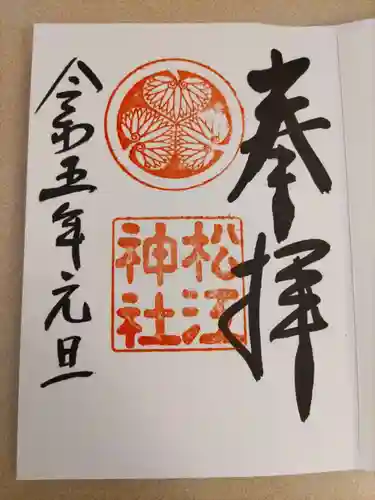 奉拝
松江
神社
令和五年元旦